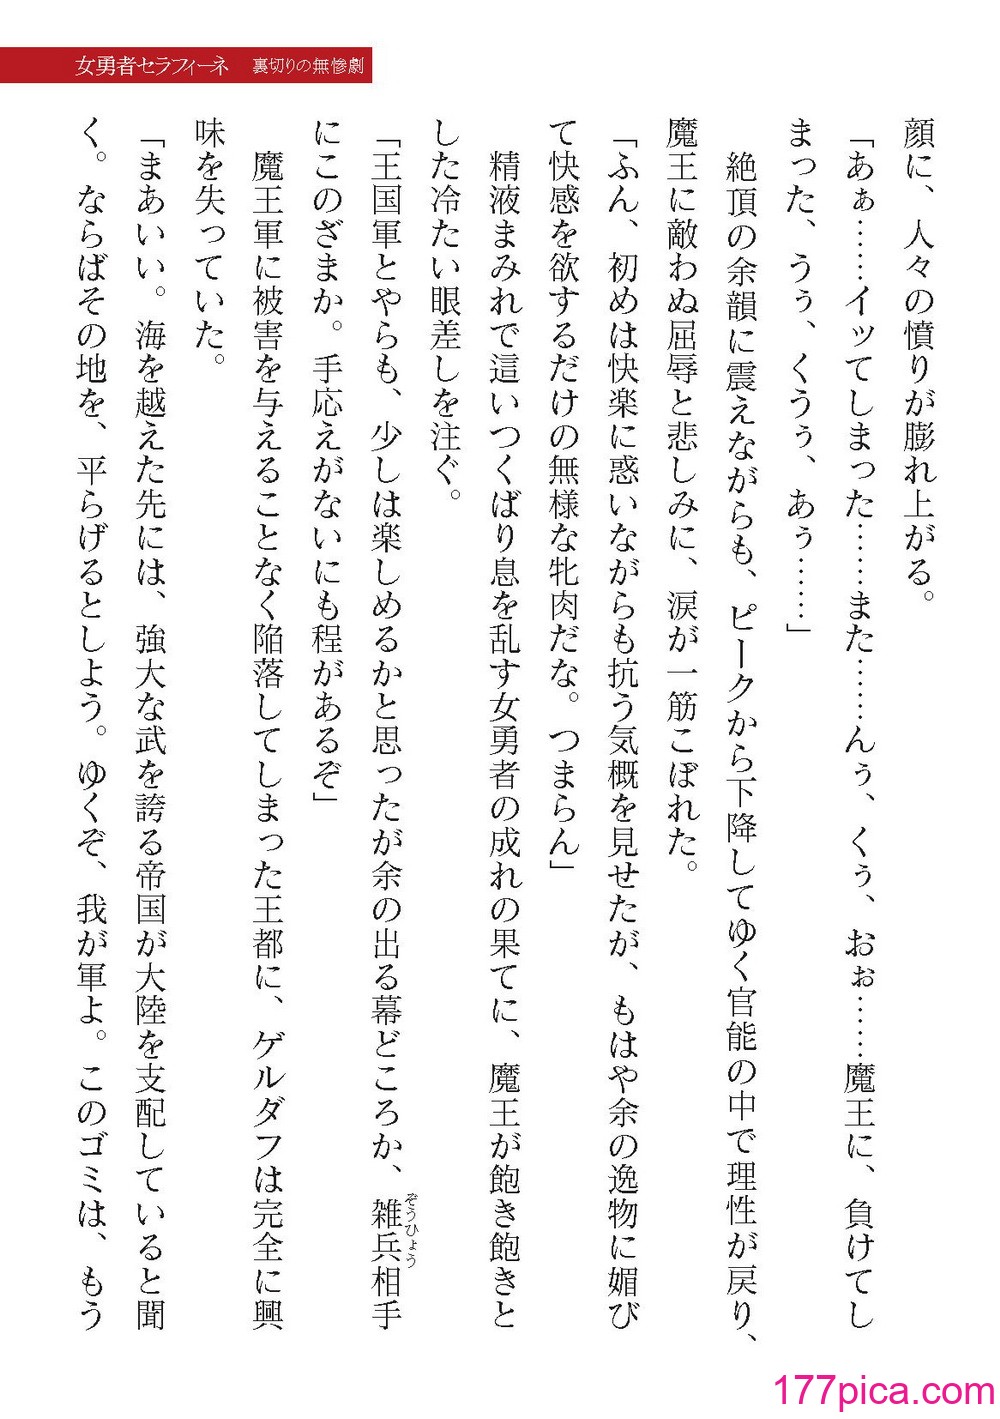 女勇者セラフィーネ　裏切りの無惨劇
顔に、人々の憤りが膨れ上がる。
「あぁ……イッてしまった……また……んぅ、くぅ、おぉ……魔王に、負けてし
まった、うぅ、くうぅ、あぅ……」
　絶頂の余韻に震えながらも、ピークから下降してゆく官能の中で理性が戻り、
魔王に敵わぬ屈辱と悲しみに、涙が一筋こぼれた。
「ふん、初めは快楽に惑いながらも抗う気概を見せたが、もはや余の逸物に媚び
て快感を欲するだけの無様な牝肉だな。つまらん」
　精液まみれで這いつくばり息を乱す女勇者の成れの果てに、魔王が飽き飽きと
した冷たい眼差しを注ぐ。
「王国軍とやらも、少しは楽しめるかと思ったが余の出る幕どころか、雑兵相手
ぞうひょう
にこのざまか。手応えがないにも程があるぞ」
　魔王軍に被害を与えることなく陥落してしまった王都に、ゲルダフは完全に興
味を失っていた。
「まあいい。海を越えた先には、強大な武を誇る帝国が大陸を支配していると聞
く。ならばその地を、平らげるとしよう。ゆくぞ、我が軍よ。このゴミは、もう
177pica.com